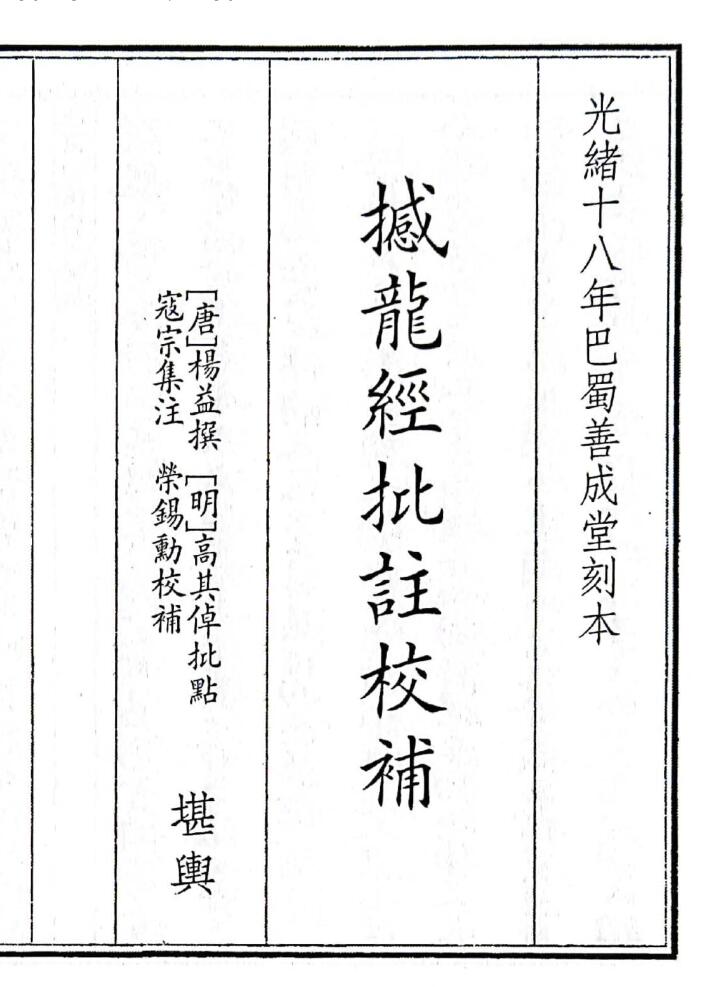 光緒十八年巴蜀善成堂刻本
撼龍經批註校補
［唐］楊益撰　［明］高其倬批點
寇宗集注　榮錫勳校補
堪輿